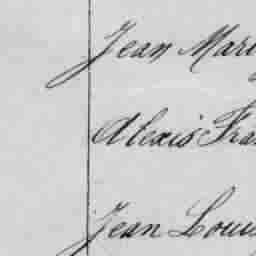 Jean Mari
Alexis Fran
Jean Louis